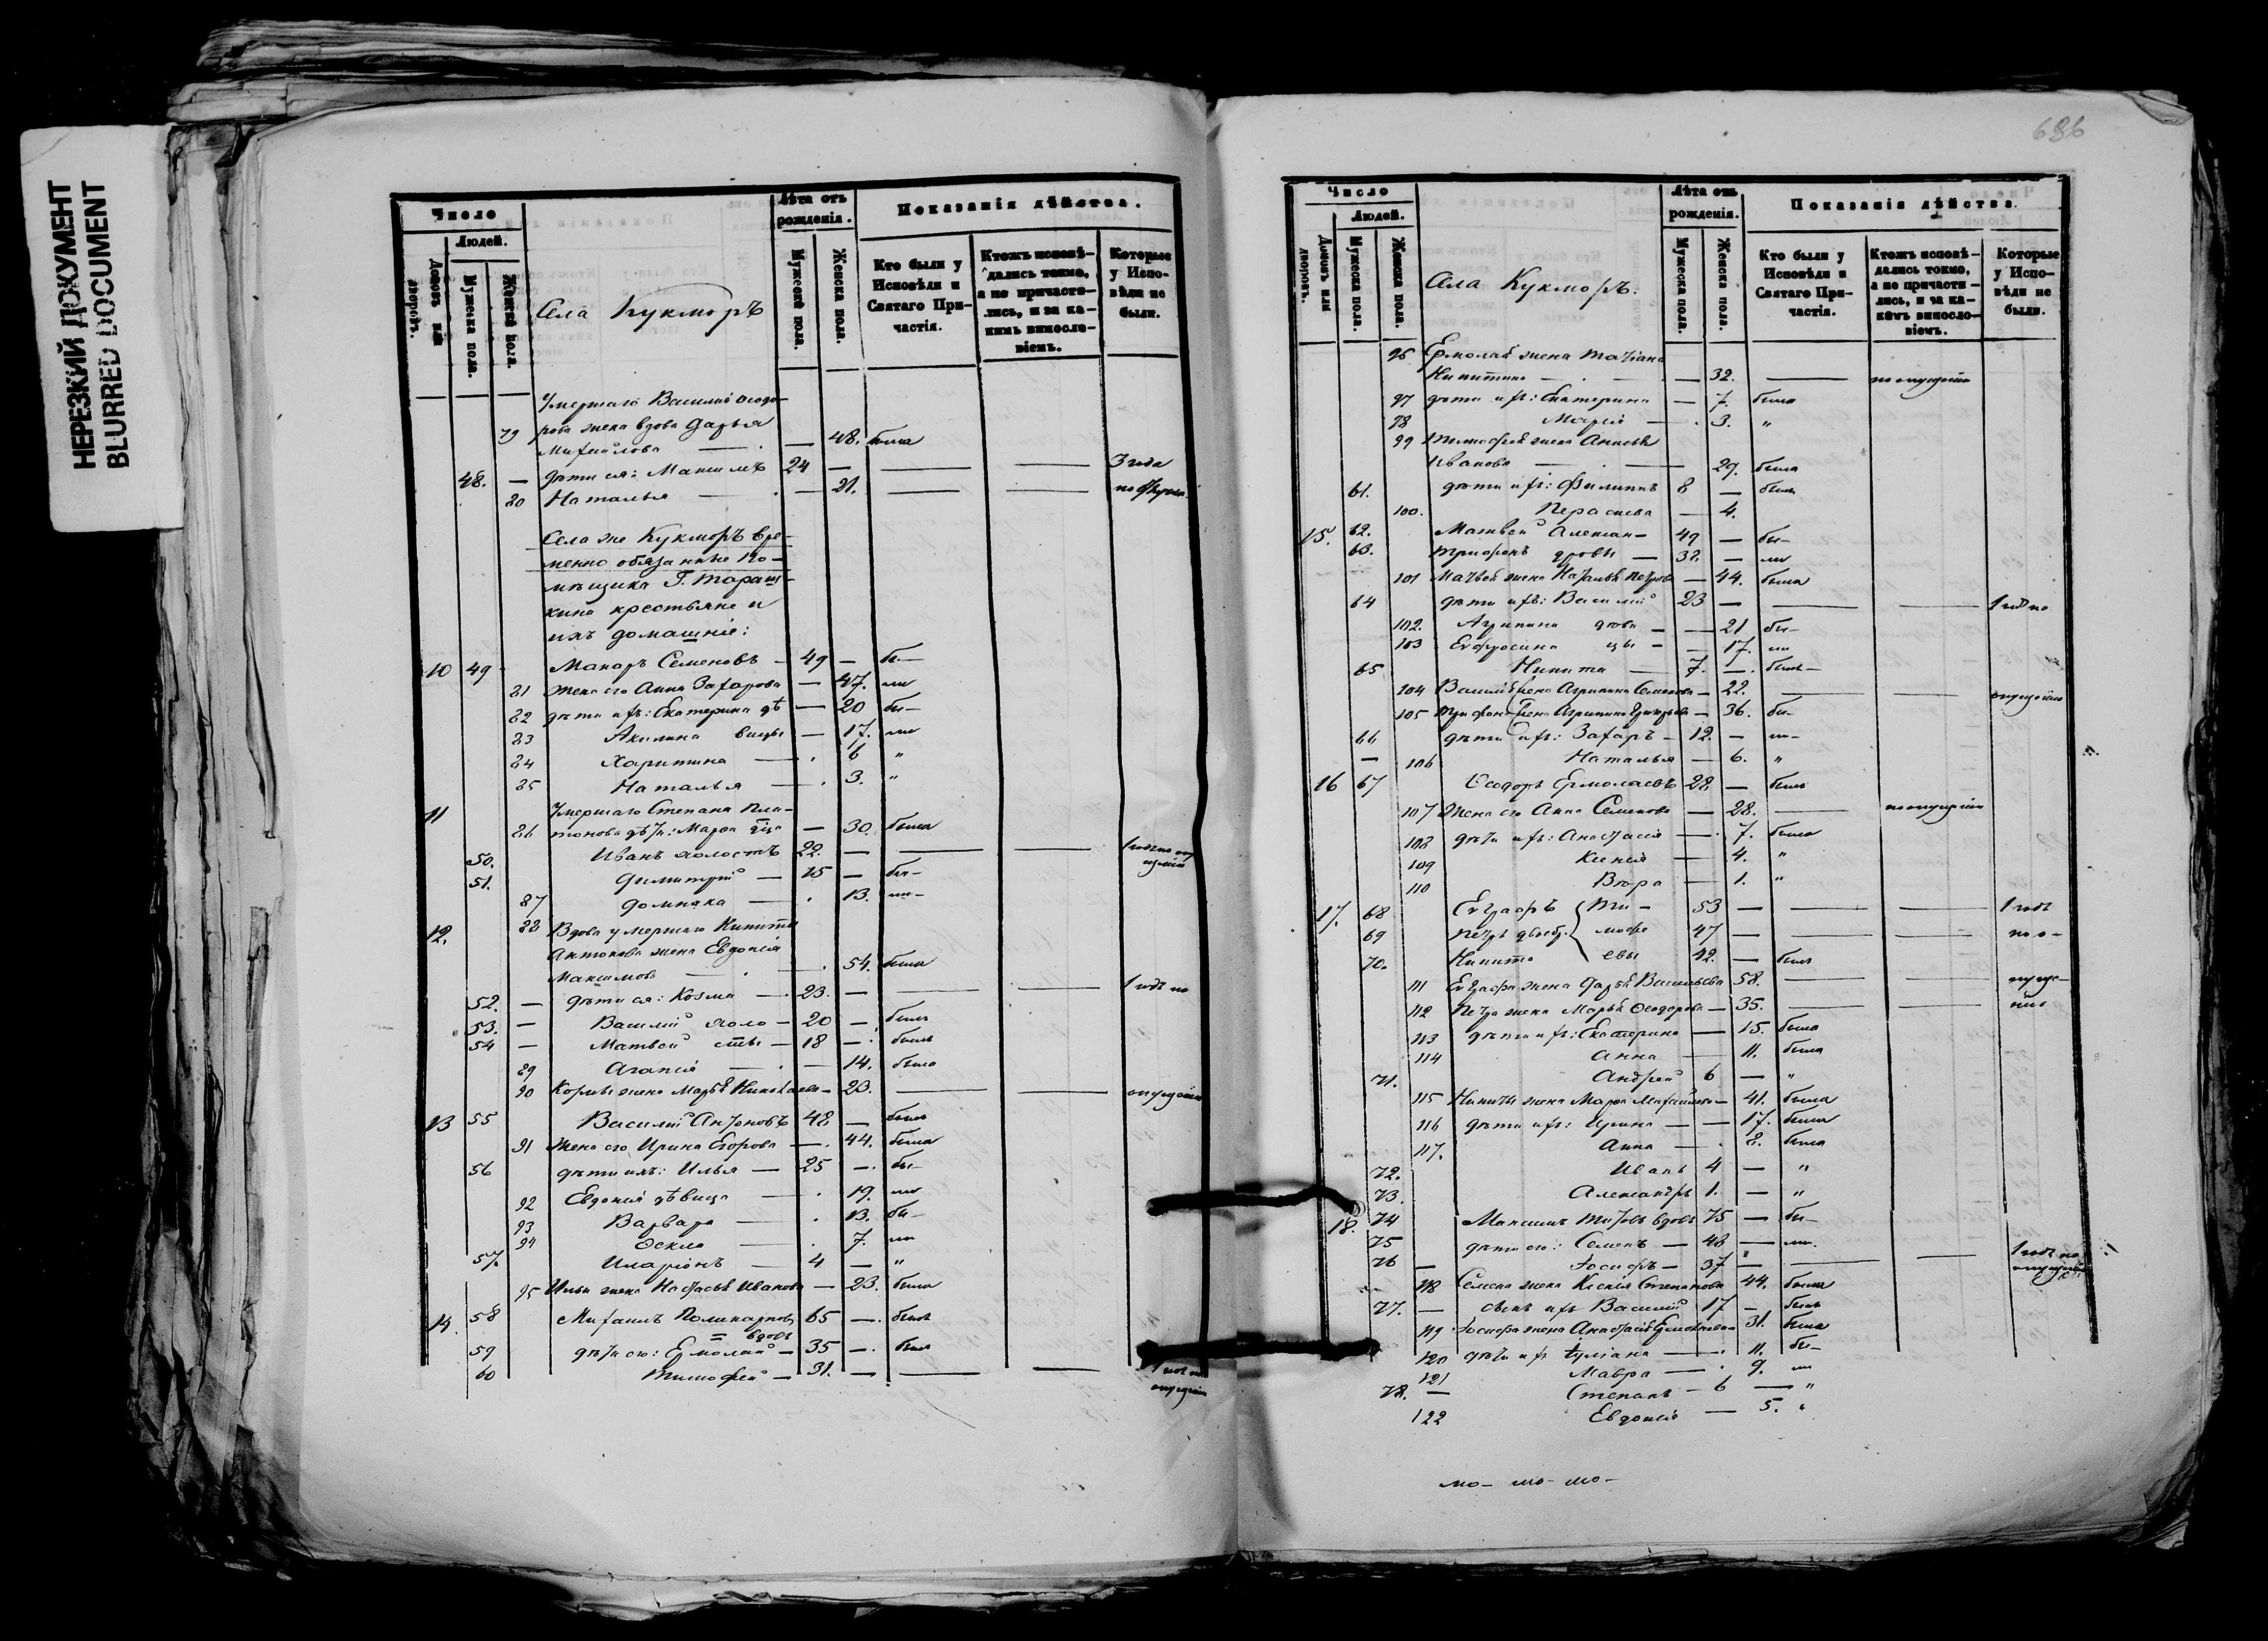 НЕРЕЗКИЙ ДОКУМЕНТ
BLURRED DOCUMENT
Число
Людей.
Домовъ или дворовъ.
Мужеска пола.
Женска пола.
Села Кукморъ
Лѣта отъ рожденія.
Мужеска пола.
Женска пола.
Показанія дѣйства.
Кто были у Исповѣди и Святаго Причастія.
Ктожъ исповѣдались токмо, а не причастились, и за какимъ винословіемъ.
Которые у Исповѣди не были.
Умершаго Василія Ѳеодо-
79 рова жена вдова Дарья
Михайлова — 48. была
48. — дѣти ея: Максимъ 24 — — — 3 года
80 Наталья — 21. — —
Села же Кукморъ вре-
менно обязанные По-
мѣщика Г.
крестьяне и
ихъ домашніе:
10 49 Макаръ Семеновъ — 49 — бы-
81 жена его Анна Захарова — 47. ли
82 дѣти ихъ: Екатерина дѣ — 20 бы-
83 Акилина вицы — 17. ли
84 Харитина — 6 "
85 Наталья — 3. "
11 Умершаго Степана Пла-
86 тонова дѣти: Марѳа — 30. была
50. Иванъ холостъ 22. — — —
51. Димитрій — 15 — бы-
87 Домника — 13. ли-
12. 88 Вдова умершаго Никиты
Антонова жена Евдокія
Максимова — 54. была
52. — дѣти ея: Козма — 23. — — — 1 годъ по
53. — Василій холо — 20 — былъ
54 — Матвей сты — 18 — былъ
89 Агапія — 14. была
90 Козмы жена Марья Николаева — 23. — — опущенію
13 55 Василій Антоновъ 48 — былъ
91 Жена его Ирина Егорова — 44. была
56 дѣти ихъ: Илья — 25 — бы-
92 Евдокія дѣвица — 19. ли
93 Варвара — 13. бы-
94 Ѳекла — 7. ли
57. Иларіонъ — 4 — "
95 Ильи жена Настасья Иванова — 23. была
14. 58 Михаилъ Поликарповъ 65 — былъ
вдовъ
59 дѣти его: Ермолай — 35 — былъ
60 Тимофей — 31. — — — 1 годъ по
опущенію
686
Число
Людей.
Домовъ или дворовъ.
Мужеска пола.
Женска пола.
Села Кукморъ.
Лѣта отъ рожденія.
Мужеска пола.
Женска пола.
Показанія дѣйства.
Кто были у Исповѣди и Святаго Причастія.
Ктожъ исповѣдались токмо, а не причастились, и за какимъ винословіемъ.
Которые у Исповѣди не были.
96 Ермолая жена Татіана
Никитина — 32. — по опущенію
97 дѣти ихъ: Екатерина — 7. была
98 Марія — 3. "
99 Тимофея жена Анисья
Иванова — 29. была
61. дѣти ихъ: Филиппъ 8 — былъ
100. Параскева — 4.
15. 62. Матвей Алексан- 49 — бы-
63. Трифонъ дровы — 32. — ли
101 Матвея жена Наталья Петрова — 44. была
64 дѣти ихъ: Василій 23 — — — 1 годъ по
102. Агрипина дѣви — 21 бы-
103 Евфросинія цы — 17. ли
65 Никита — 7. — былъ
104 Василія жена Агрипина Семенова — 22. — — опущенію
105 Трифона жена Агрипина — 36. бы-
66 дѣти ихъ: Захаръ — 12. — ли-
— 106 Наталья — 6. "
16 67 Ѳеодоръ Ермолаевъ 28 — былъ
107 Жена его Анна Семенова — 28. — по опущенію
108 дѣти ихъ: Анастасія — 7. была
109 Ксенія — 4. "
110 Вѣра — 1. "
17. 68 Евграфъ Ти- 53 — — — 1 годъ
69 Петръ мофе 47 — — — по о-
70. Никита евы 42. — былъ
111 Евграфа жена Дарья Васильева 58. — — пуще-
112 Петра жена Марья Ѳеодорова — 35. — — нію
113 дѣти ихъ: Екатерина — 15. была
114 Анна — 11. была
71. Андрей 6 — "
115 Никиты жена Марѳа Михайлова — 41. была
116 дѣти ихъ: Ирина — 17. была
117. Анна — 8. была
72. Иванъ 4 — "
73. Александръ 1. — "
18. 74 Максимъ Титовъ вдовъ 75 — бы-
75 дѣти его: Семенъ — 48 — ли.
76 — Іосифъ — 37 — — — 1 годъ по
опущенію
118 Семена жена Ксенія Степанова 44. была
77. — сынъ ихъ Василій 17 — былъ
119 Іосифа жена Анастасья Ермолаева 31. была
120 дѣти ихъ Іуліана — 11. бы-
121 Мавра — 9. ли
78. — Степанъ — 6 — "
122 Евдокія — 5. "